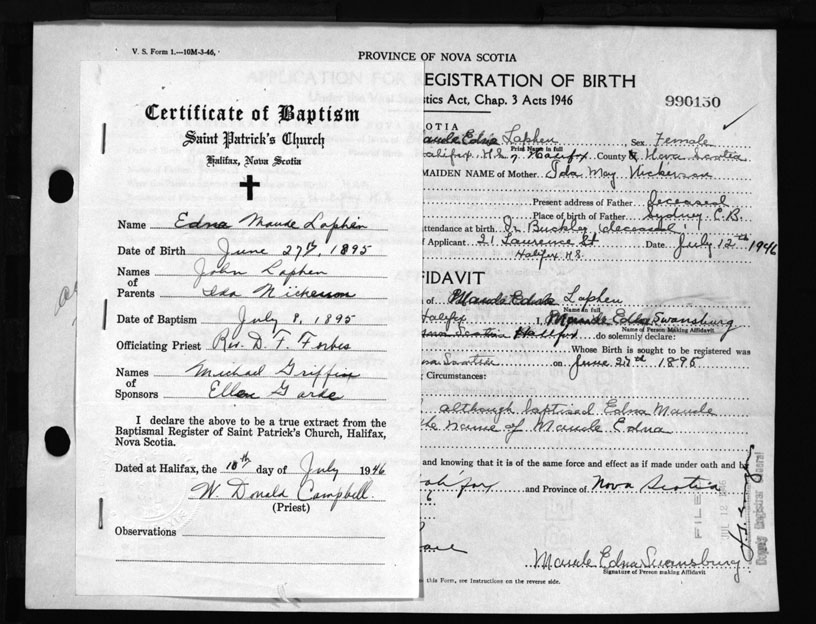 V. S. Form 1.—10M-3-46.
PROVINCE OF NOVA SCOTIA
Certificate of Baptism
Saint Patrick's Church
Halifax, Nova Scotia
Name Edna Maude Laphen
Date of Birth June 27th, 1895
Names of Parents John Laphen
Ida Nickerson
Date of Baptism July 8, 1895
Officiating Priest Rev. D. F. Forbes
Names of Sponsors Michael Griffin
Ellen Garde
I declare the above to be a true extract from the
Baptismal Register of Saint Patrick's Church, Halifax,
Nova Scotia.
Dated at Halifax, the 10th day of July 1946
W. Donald Campbell.
(Priest)
Observations
EGISTRATION OF BIRTH
stics Act, Chap. 3 Acts 1946
990150
SCOTIA
Maude Edna Laphen Sex Female
Print Name in full
Halifax, N.S. Halifax County & Nova Scotia
MAIDEN NAME of Mother Ida May Nickerson
Present address of Father deceased
Place of birth of Father Sydney C.B.
attendance at birth Dr Buckley deceased
f Applicant 21 Laurence St Date July 12th 1946
Halifax N.S.
FIDAVIT
of Maude Edna Laphen
Name in full
Halifax I, Maude Edna Swansburg
Name of Person Making Affidavit
Nova Scotia Halifax do solemnly declare:
Whose Birth is sought to be registered was
Nova Scotia on June 27th 1895
Circumstances:
although baptised Edna Maude
the name of Maude Edna
and knowing that it is of the same force and effect as if made under oath and b
Halifax and Province of Nova Scotia
FILED
Deputy Registrar General
Maude Edna Swansburg
Signature of Person making Affidavit
this Form, see Instructions on the reverse side.